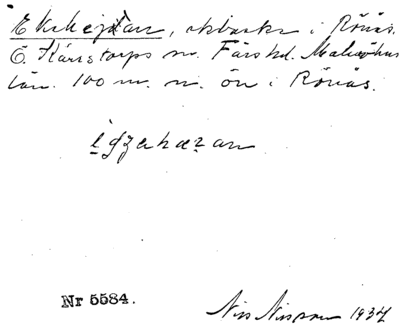 Ekhejdan, ekbacke i Rönås,
Ö. Kärrstorps sn. Färs hd. Malmöhus
län. 100 m. n. ön i Rönås.
Nr 5584. Nils Nilsson 1934